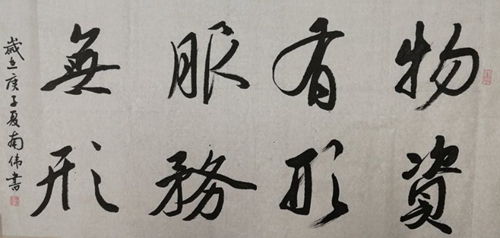 物资
有形
服務
無形
歲在庚子夏南伟書